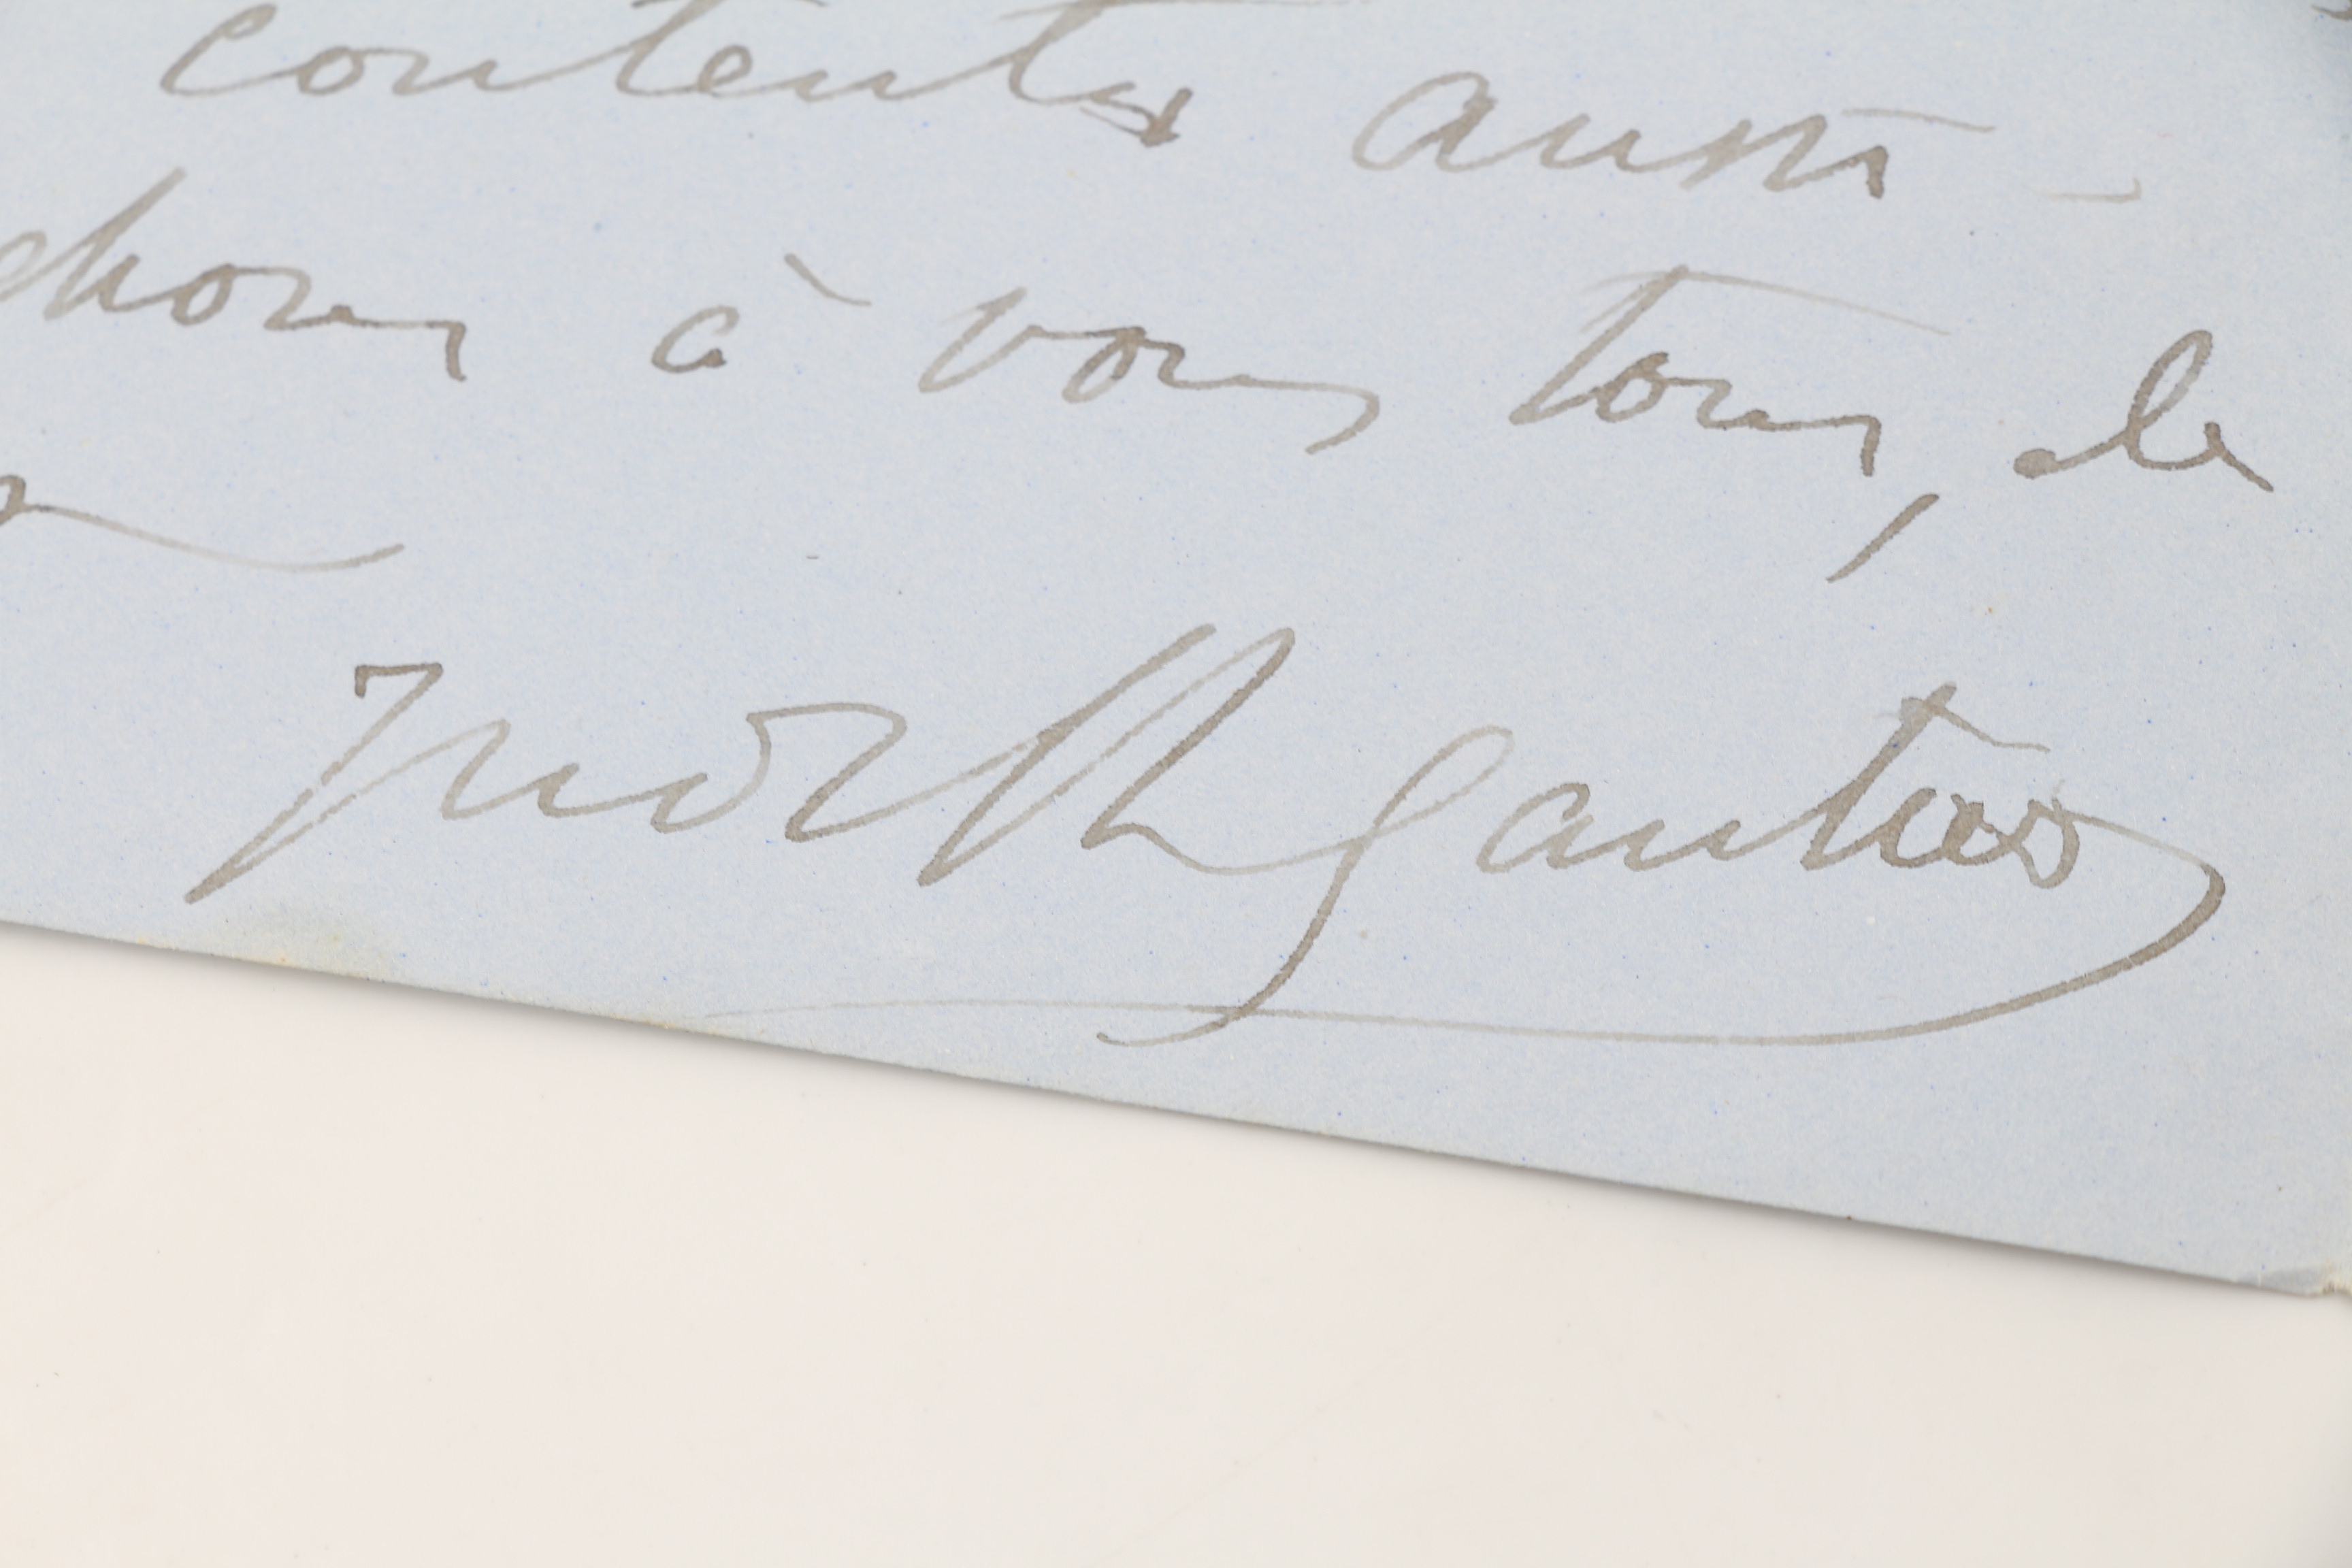 contents aussi -
choses à vous tous, de
Judith Gautier